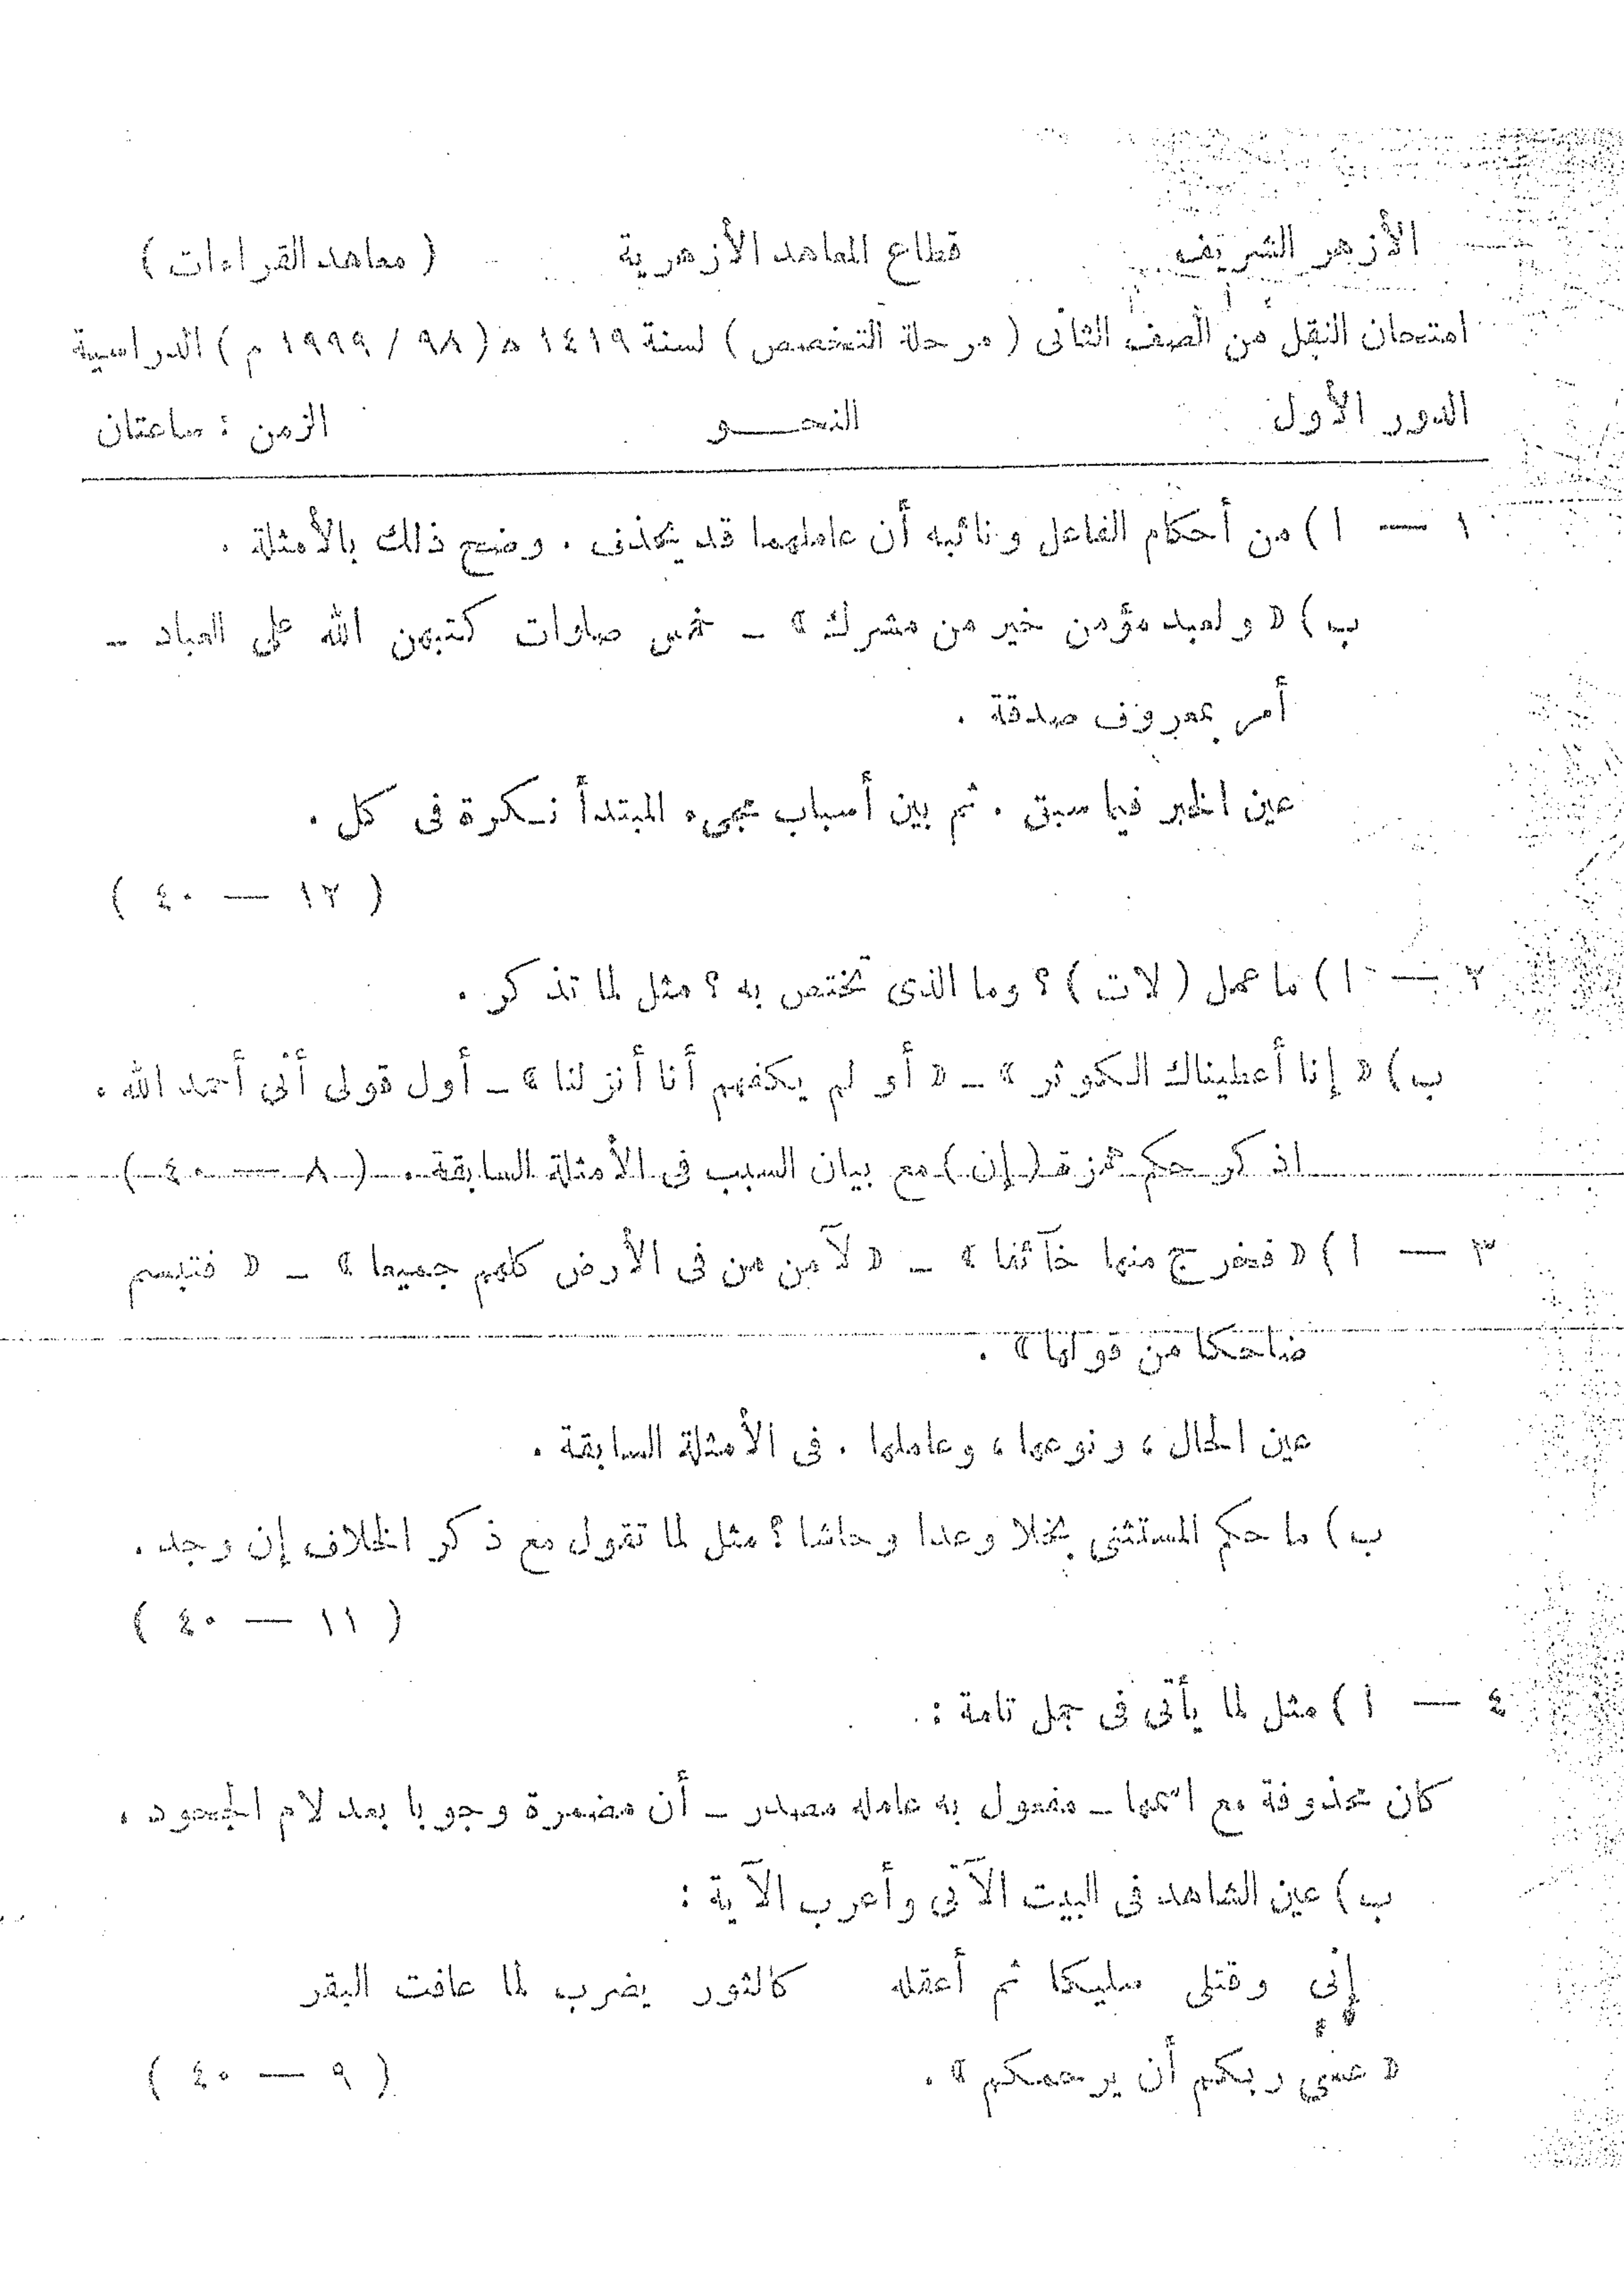 الأزهر الشريف قطاع المعاهد الأزهرية ( معاهد القراءات )
امتحان النقل من الصف الثانى ( مرحلة التخصص ) لسنة ١٤١٩ ه ( ٩٨ / ١٩٩٩ م ) الدراسية
الدور الأول النحـــو الزمن : ساعتان
١ — ا ) من أحكام الفاعل ونائبه أن عاملهما قد يحذف . وضح ذلك بالأمثلة .
ب ) « ولعبد مؤمن خير من مشرك » - خمس صلوات كتبهن الله على العباد -
أمر بمعروف صدقة .
عين الخبر فيما سبق . ثم بين أسباب مجىء المبتدأ نكرة فى كل .
( ١٢ — ٤٠ )
٢ — ا ) ما عمل ( لات ) ؟ وما الذى تختص به ؟ مثل لما تذكر .
ب ) « إنا أعطيناك الكوثر » - « أو لم يكفهم أنا أنزلنا » - أول قولى أنى أحمد الله .
اذكر حكم همزة ( إن ) مع بيان السبب فى الأمثلة السابقة . ( ٨ — ٤٠ )
٣ — ا ) « فخرج منها خآئفا » - « لآمن من فى الأرض كلهم جميعا » - « فتبسم
ضاحكا من قولها » .
عين الحال ، ونوعها ، وعاملها . فى الأمثلة السابقة .
ب ) ما حكم المستثنى بخلا وعدا وحاشا ؟ مثل لما تقول مع ذكر الخلاف إن وجد .
( ١١ — ٤٠ )
٤ — ا ) مثل لما يأتى فى جمل تامة :
كان محذوفة مع اسمها - مفعول به عامله مصدر - أن مضمرة وجوبا بعد لام الجحود .
ب ) عين الشاهد فى البيت الآتى وأعرب الآية :
إنى وقتلى سليكا ثم أعقله كالثور يضرب لما عافت البقر
« عسى ربكم أن يرحمكم » . ( ٩ — ٤٠ )